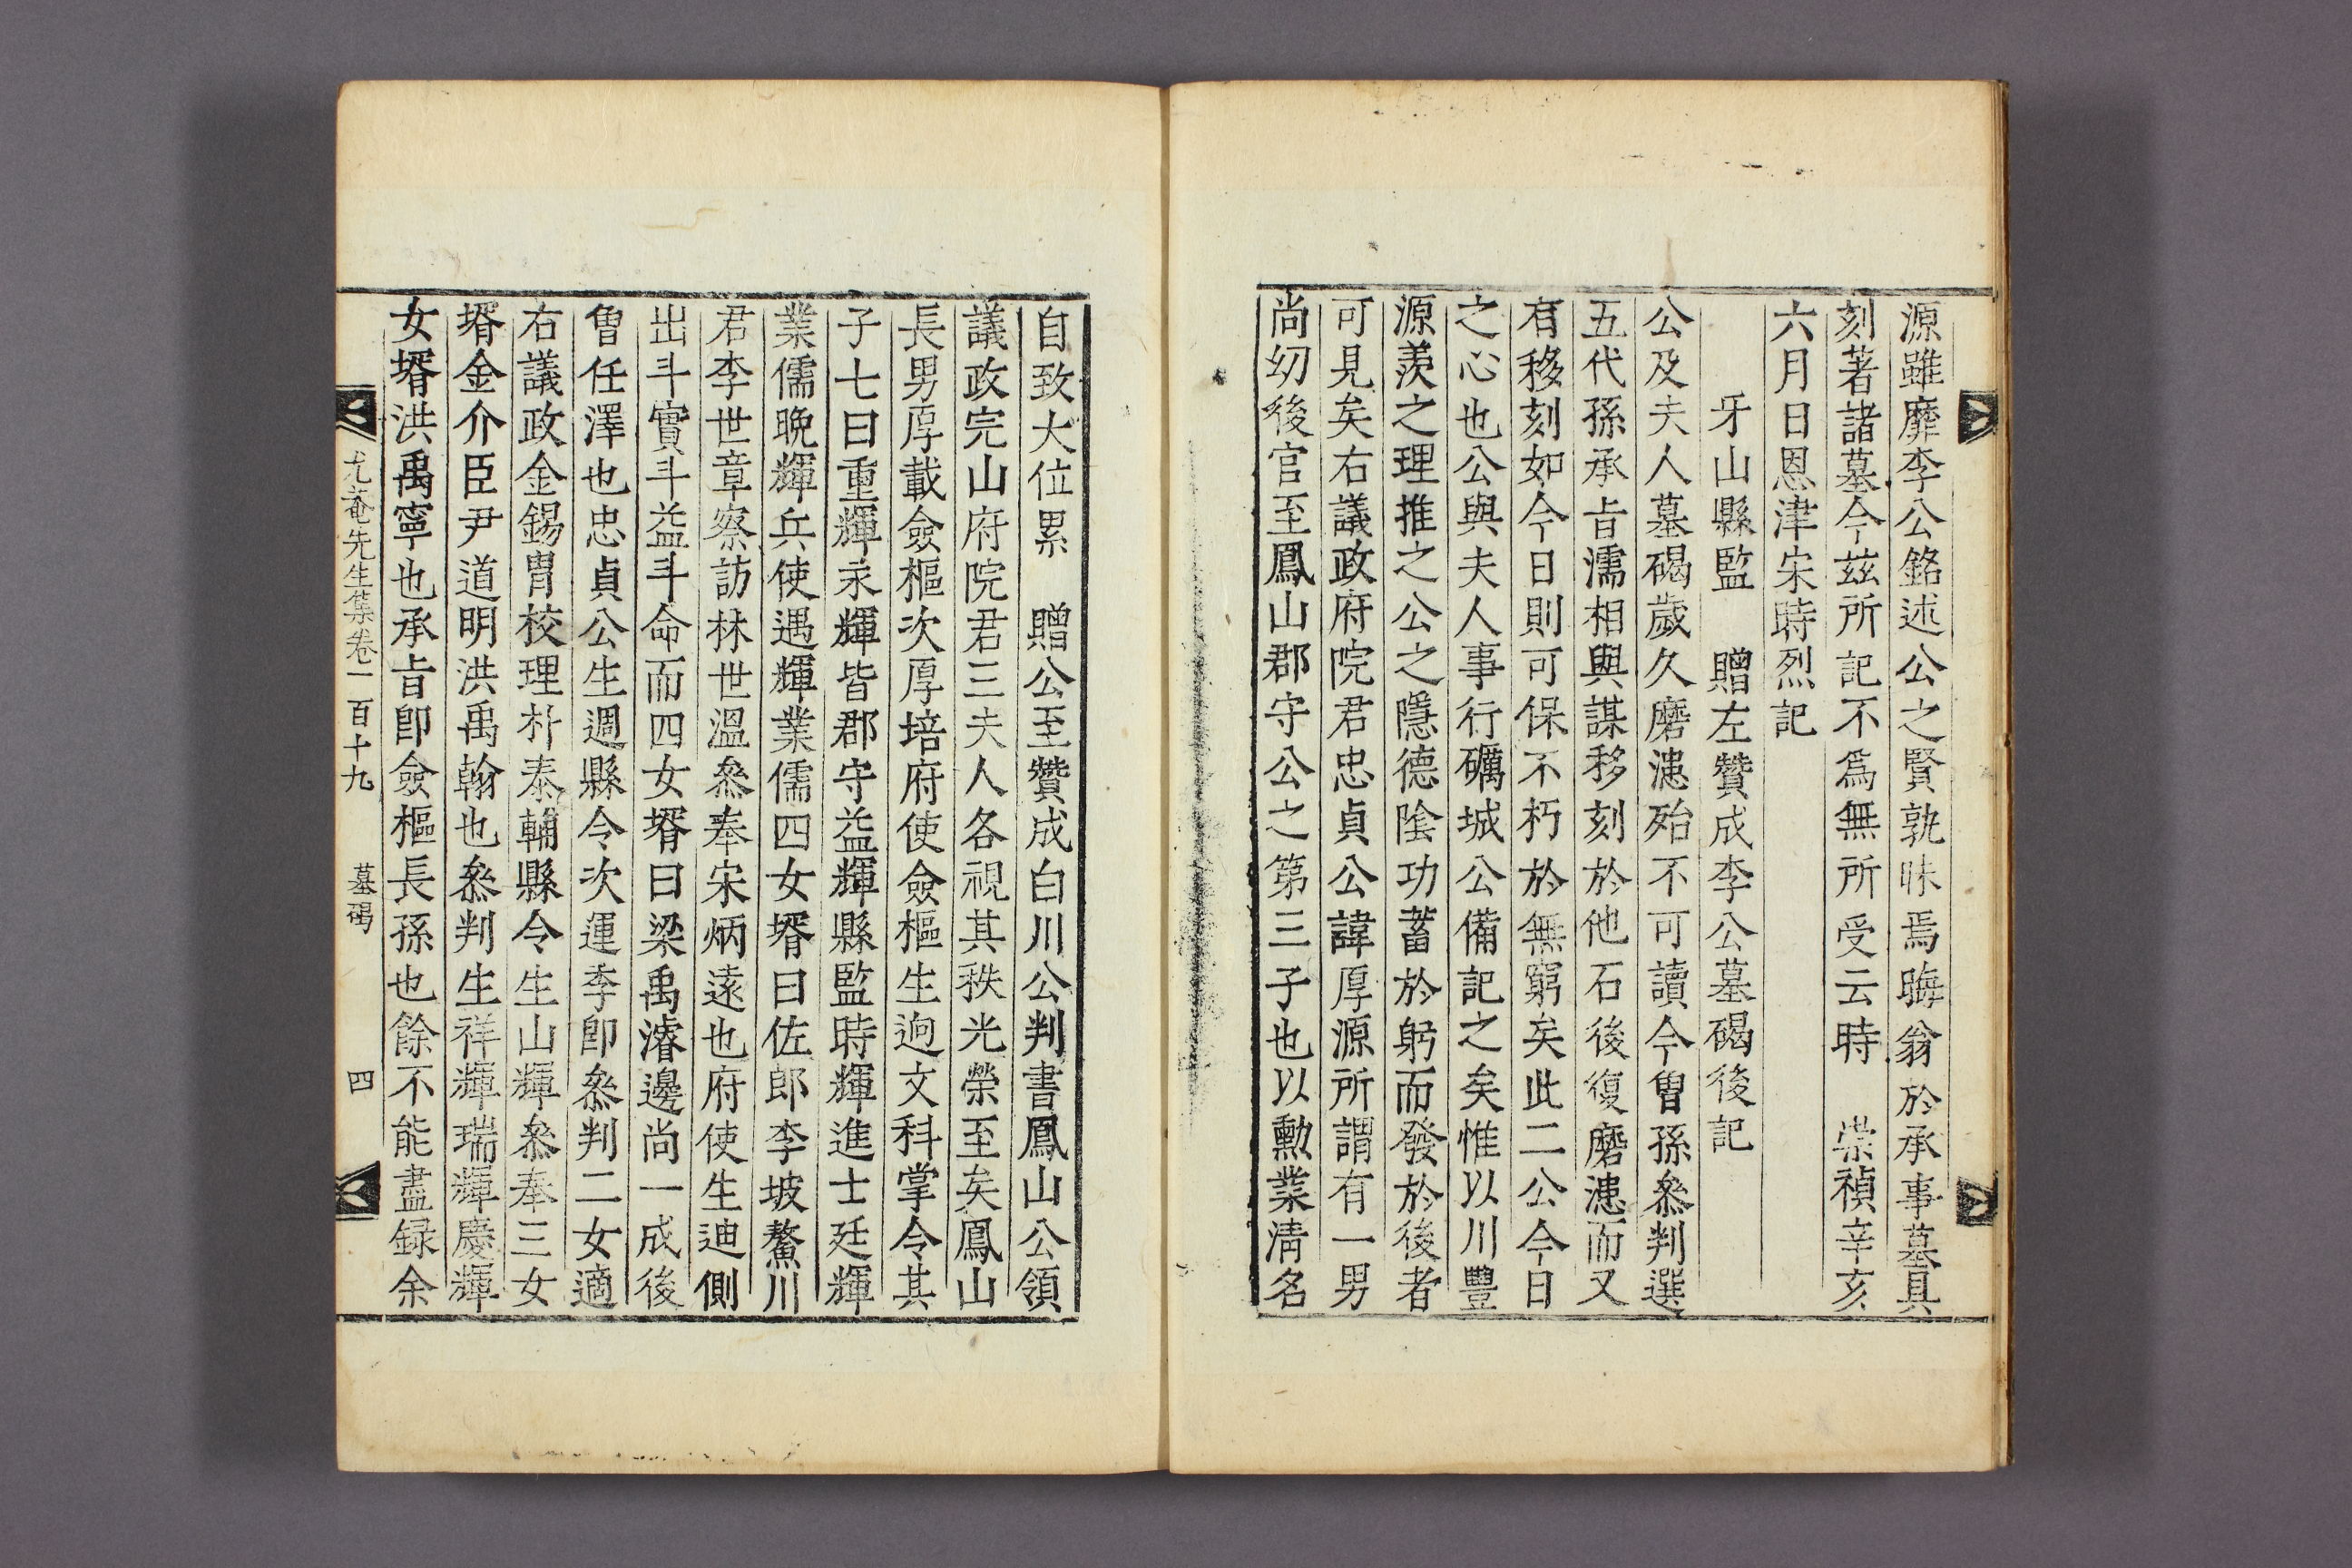 源雖靡李公銘述公之賢孰昧焉晦翁於承事墓具
刻著諸墓今玆所記不爲無所受云時 崇禎辛亥
六月日恩津宋時烈記
牙山縣監 贈左贊成李公墓碣後記
公及夫人墓碣歲久磨漶殆不可讀今曾孫叅判選
五代孫承旨濡相與謀移刻於他石後復磨漶而又
有移刻如今日則可保不朽於無窮矣此二公今日
之心也公與夫人事行礪城公備記之矣惟以川豐
源羨之理推之公之隱德陰功蓄於躬而發於後者
可見矣右議政府院君忠貞公諱厚源所謂有一男
尚幼後官至鳳山郡守公之第三子也以勳業淸名
自致大位累 贈公至贊成白川公判書鳳山公領
議政完山府院君三夫人各視其秩光榮至矣鳳山
長男厚載僉樞次厚培府使僉樞生逈文科掌令其
子七曰重輝永輝皆郡守益輝縣監時輝進士廷輝
業儒晩輝兵使遇輝業儒四女壻曰佐郎李坡鰲川
君李世章察訪林世溫叅奉宋炳遠也府使生迪側
出斗實斗益斗命而四女壻曰梁禹濬邊尚一成後
曾任澤也忠貞公生週縣令次運季卽叅判二女適
右議政金錫胄校理朴泰輔縣令生山輝叅奉三女
壻金介臣尹道明洪禹翰也叅判生祥輝瑞輝慶輝
女壻洪禹寧也承旨卽僉樞長孫也餘不能盡録余
尤菴先生集卷一百十九 墓碣 四